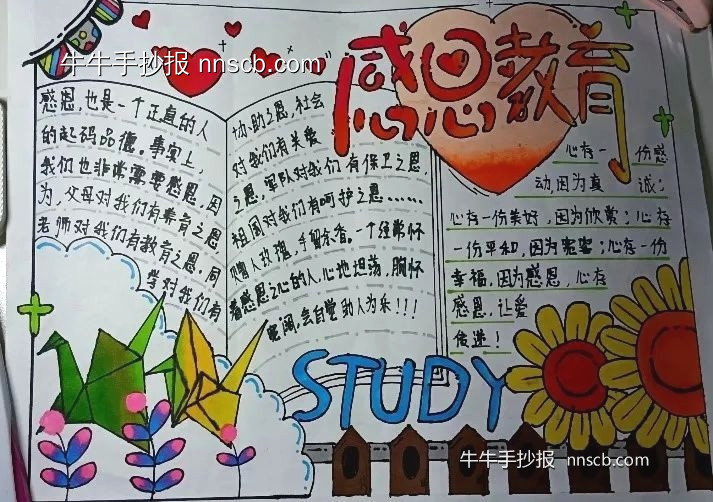 牛牛手抄报 nnscb.com
感恩教育
感恩,也是一个正直的人
的起码品德。事实上,
我们也非常需要感恩,因
为,父母对我们有养育之恩
老师对我们有教育之恩,同
学对我们有
协助之恩,社会
对我们有关爱
之恩,军队对我们有保卫之恩,
祖国对我们有呵护之恩……
赠人玫瑰,手留余香。一个经常怀
着感恩之心的人,心地坦荡,胸怀
宽阔,会自觉助人为乐!!!
心存一份感
动,因为真诚;
心存一份美好,因为欣赏;心存
一份平和,因为宽容;心存一份
幸福,因为感恩,心存
感恩,让爱
传递!
STUDY
牛牛手抄报 nnscb.com